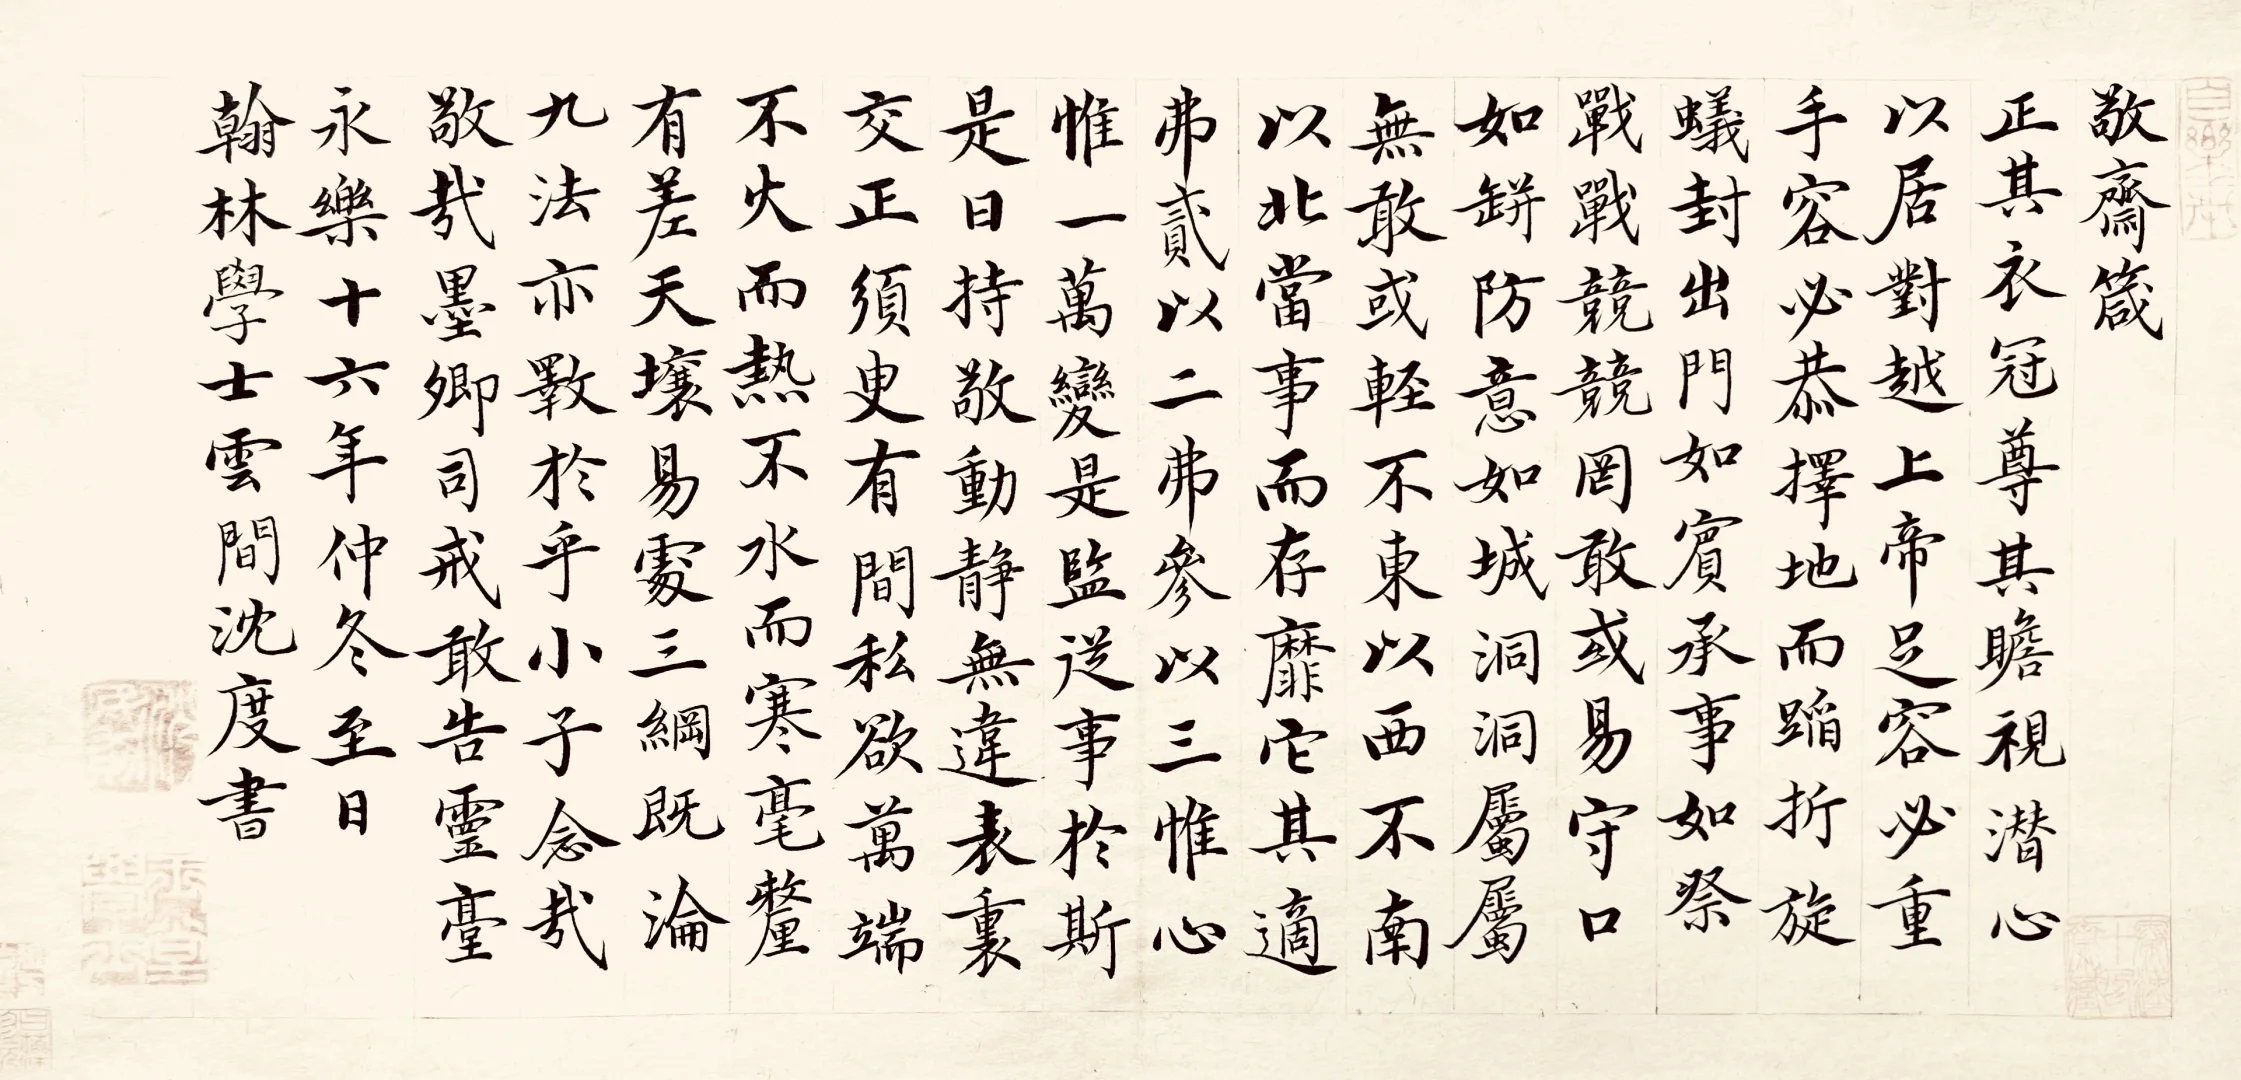 敬齋箴
正其衣冠尊其瞻視潜心
以居對越上帝足容必重
手容必恭擇地而蹈折旋
蟻封出門如賓承事如祭
戰戰競競罔敢或易守口
如缾防意如城洞洞屬屬
無敢或輕不東以西不南
以北當事而存靡它其適
弗貳以二弗參以三惟心
惟一萬變是監从事於斯
是曰持敬動静無違表裏
交正須臾有間私欲萬端
不火而熱不水而寒毫釐
有差天壤易處三綱既淪
九法亦斁於乎小子念哉
敬哉墨卿司戒敢告靈臺
永樂十六年仲冬至日
翰林學士雲間沈度書